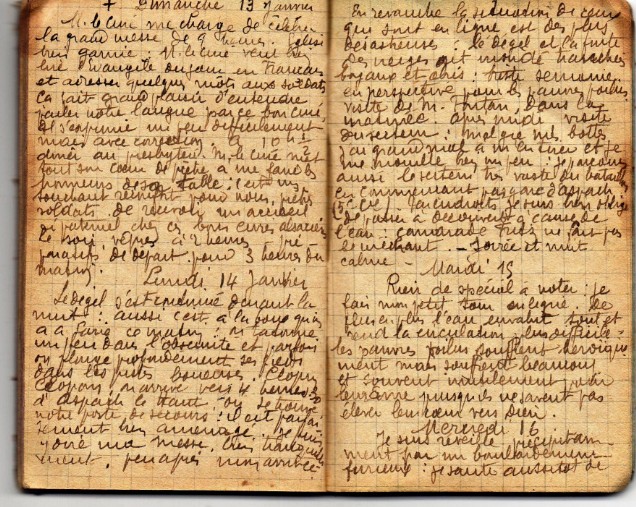 + Dimanche 13 Janvier
M. le Curé me charge de célébrer
la grand messe de 9 heures. église
bien garnie : M. le Curé veut bien
lire l'évangile du jour en français
et adresser quelques mots aux soldats
ça fait grand plaisir d'entendre
parler notre langue par ce bon curé
il s'exprime un peu difficilement
mais avec correction. à 10 h ½
dîner au presbytère. M. le Curé met
tout son cœur de prêtre à me faire les
honneurs de sa table : c'est un
touchant réconfort pour nous, petits
soldats de recevoir un accueil
si paternel chez ces bons curés alsaciens
le soir, vêpres à 2 heures. pré-
paratifs de départ pour 3 heures du
matin.
Lundi 14 Janvier
Le dégel s'est continué durant la
nuit : aussi c'est à la boue qu'on
a à faire ce matin : on tâtonne
un peu dans l'obscurité et parfois
on plonge profondément ses pieds
dans les boueuses. Clopin
Clopan, on arrive vers 4 heures
d'Aspach le Haut où se trouve
notre poste de secours : il est parfai-
tement bien aménagé. Je puis
ma messe, bien tranquille
ment. peu après mon arrivée
En revanche la situation de ceux
qui sont en ligne est des plus
désastreuses : le dégel et la fonte
des neiges ont inondé
boyaux et abris : triste semaine
en perspective pour les pauvres poilus
visite de M. dans la
matinée. après midi visite
du secteur : malgré mes bottes
j'ai grand mal à m'en tirer et je
me mouille bien un peu : je parcours
aussi le secteur très vaste du bataillon
en commençant par gare d'Aspach
(5e Cie). Par endroits je suis bien obligé
de passer à découvert à cause de
l'eau : camarade Fritz ne fait pas
le méchant. – Soirée et nuit
calme –
Mardi 15
Rien de spécial à noter : je
fais mon petit tour en ligne. De
plus en plus l'eau envahit tout et
rend la circulation plus difficile
les pauvres poilus souffrent héroïque
ment mais souffrent beaucoup
et souvent inutilement pour
leur âme puisqu'ils ne savent pas
élever leur cœur vers Dieu.
Mercredi 16
Je suis réveillé précipitam-
ment par un bombardement
furieux : je saute aussitôt de